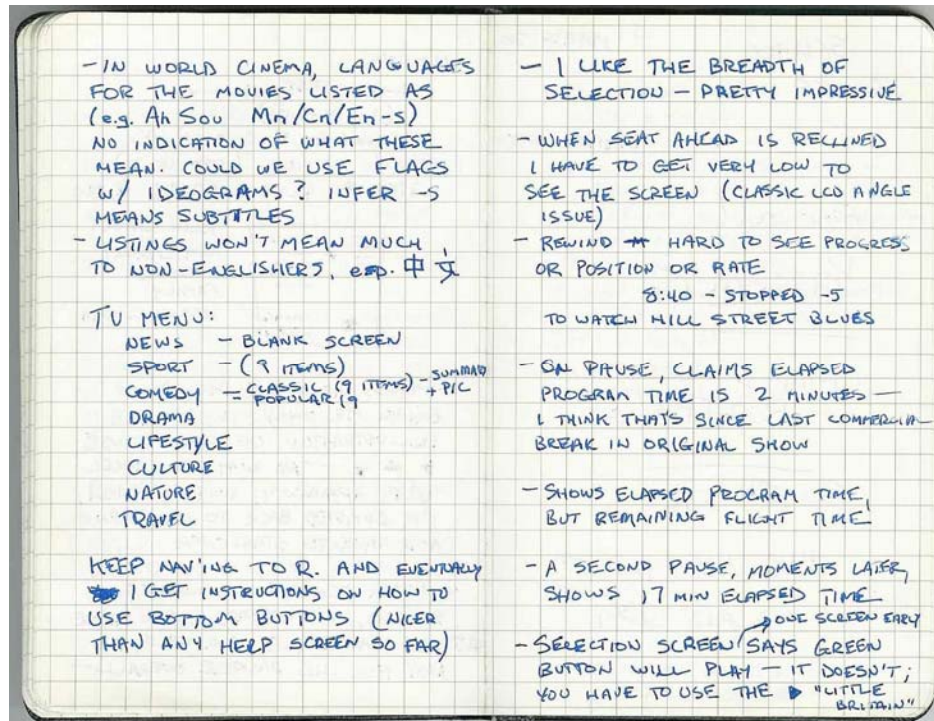 - IN WORLD CINEMA, LANGUAGES
FOR THE MOVIES LISTED AS
(e.g. Ah Sou Mn/Cn/En-s)
NO INDICATION OF WHAT THESE
MEAN. COULD WE USE FLAGS
W/ IDEOGRAMS? INFER -S
MEANS SUBTITLES
- LISTINGS WON'T MEAN MUCH
TO NON-ENGLISHERS, esp. 中文
TV MENU:
NEWS - BLANK SCREEN
SPORT - (9 ITEMS)
COMEDY - CLASSIC (9 ITEMS) - SUMMARY + PIC
- POPULAR 19
DRAMA
LIFESTYLE
CULTURE
NATURE
TRAVEL
KEEP NAV'ING TO R. AND EVENTUALLY
I GET INSTRUCTIONS ON HOW TO
USE BOTTOM BUTTONS (NICER
THAN ANY HELP SCREEN SO FAR)
- I LIKE THE BREADTH OF
SELECTION - PRETTY IMPRESSIVE
- WHEN SEAT AHEAD IS RECLINED
I HAVE TO GET VERY LOW TO
SEE THE SCREEN (CLASSIC LCD ANGLE
ISSUE)
- REWIND HARD TO SEE PROGRESS
OR POSITION OR RATE
8:40 - STOPPED -5
TO WATCH HILL STREET BLUES
- ON PAUSE, CLAIMS ELAPSED
PROGRAM TIME IS 2 MINUTES -
I THINK THAT'S SINCE LAST COMMERCIAL
BREAK IN ORIGINAL SHOW
- SHOWS ELAPSED PROGRAM TIME,
BUT REMAINING FLIGHT TIME
- A SECOND PAUSE, MOMENTS LATER,
SHOWS 17 MIN ELAPSED TIME
→ ONE SCREEN EARLY
- SELECTION SCREEN SAYS GREEN
BUTTON WILL PLAY - IT DOESN'T;
YOU HAVE TO USE THE ▶ "LITTLE
BRITAIN"